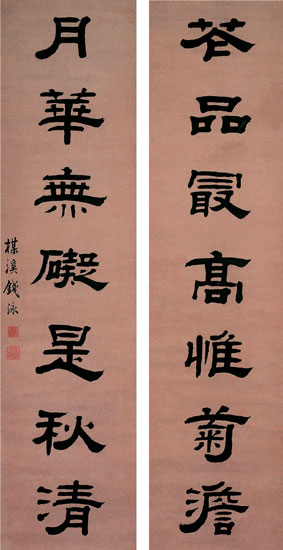 苍品㝡高惟菊澹
月華無礙是秋清
楳溪錢泳